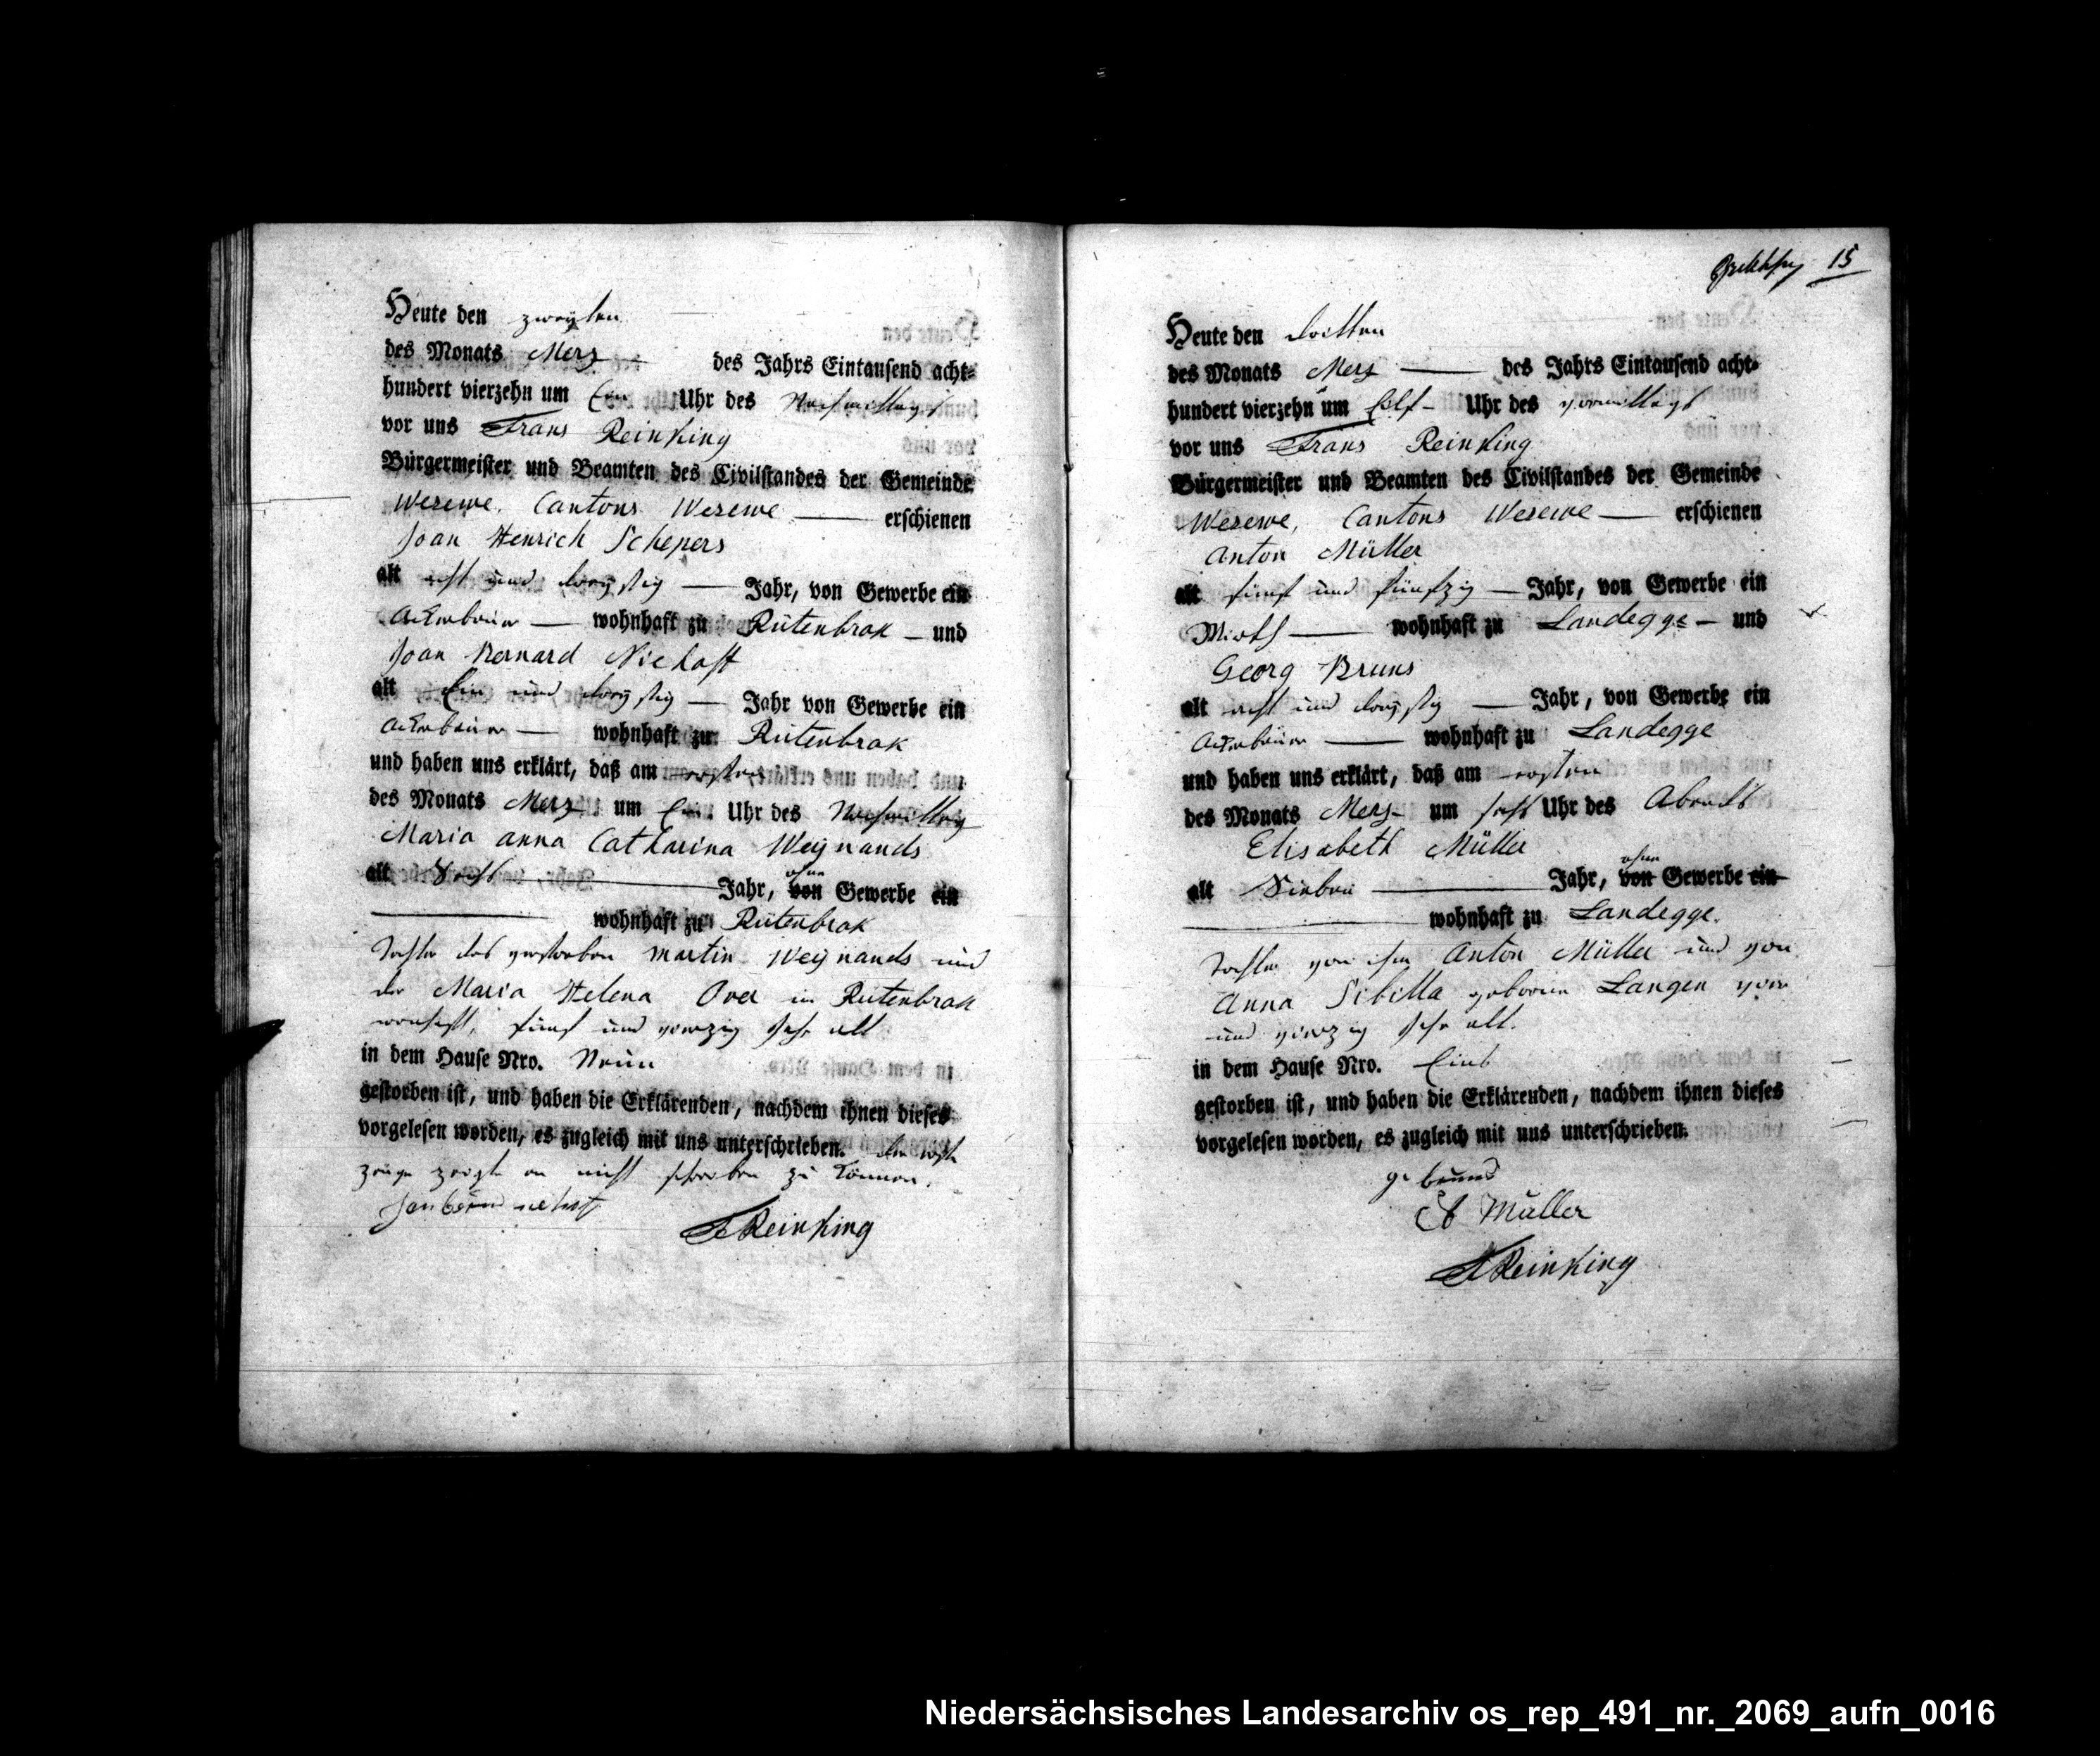 Heute den zweyten
des Monats Merz des Jahrs Eintausend acht-
hundert vierzehn um Ein Uhr des Nachmittags
vor uns Frans Reinking
Bürgermeister und Beamten des Civilstandes der Gemeinde
Wesewe, Cantons Wesewe erschienen
Joan Henrich Schepers
alt acht und dreyssig Jahr, von Gewerbe ein
Ackerbauer wohnhaft zu Rütenbrok und
Joan Bernard Niehoff
alt Ein und dreyssig Jahr von Gewerbe ein
Ackerbauer wohnhaft zu Rütenbrok
und haben uns erklärt, daß am ersten
des Monats Merz um Ein Uhr des Nachmittag
Maria anna Catharina Weijnands
alt Jahr, ohne von Gewerbe ein
wohnhaft zu Rütenbrok
Tochter des verstorben Martin Weijnands und
der Maria Helena Over in Rütenbrok
wonhaft, fünf und vierzig Jahr alt
in dem Hause Nro. Neün
gestorben ist, und haben die Erklärenden, nachdem ihnen dieses
vorgelesen worden, es zugleich mit uns unterschrieben. der erste
zeuge zeigte an nicht schreiben zu können.
Jan bernd niehoff
F Reinking
15
Heute den dritten
des Monats Merz des Jahrs Eintausend acht-
hundert vierzehn um Eilf Uhr des vormittags
vor uns Frans Reinking
Bürgermeister und Beamten des Civilstandes der Gemeinde
Wesewe, Cantons Wesewe erschienen
Anton Müller
alt fünf und fünfzig Jahr, von Gewerbe ein
Wirth wohnhaft zu Landegge und
Georg Bruns
alt acht und dreyssig Jahr, von Gewerbe ein
Ackerbauer wohnhaft zu Landegge
und haben uns erklärt, daß am ersten
des Monats Merz um sechs Uhr des Abends
Elisabeth Müller
alt Sieben Jahr, ohne von Gewerbe ein
wohnhaft zu Landegge.
Tochter von ihm Anton Müller und von
Anna Sibilla geboren Langen vier
und vierzig Jahr alt.
in dem Hause Nro. Eins
gestorben ist, und haben die Erklärenden, nachdem ihnen dieses
vorgelesen worden, es zugleich mit uns unterschrieben.
g bruns
A Müller
F Reinking
Niedersächsisches Landesarchiv os_rep_491_nr._2069_aufn_0016